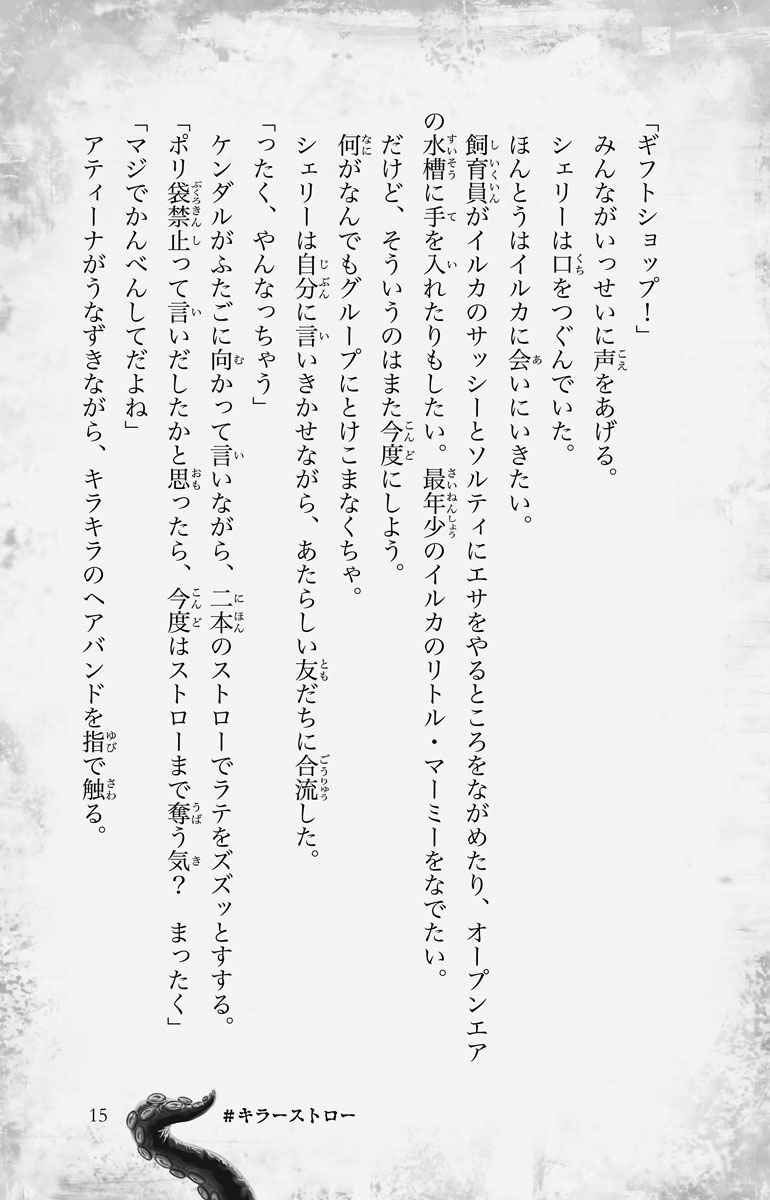 「ギフトショップ！」
みんながいっせいに声をあげる。
シェリーは口をつぐんでいた。
ほんとうはイルカに会いにいきたい。
飼育員がイルカのサッシーとソルティにエサをやるところをながめたり、オープンエア
の水槽に手を入れたりもしたい。最年少のイルカのリトル・マーミーをなでたい。
だけど、そういうのはまた今度にしよう。
何がなんでもグループにとけこまなくちゃ。
シェリーは自分に言いきかせながら、あたらしい友だちに合流した。
「ったく、やんなっちゃう」
ケンダルがふたごに向かって言いながら、二本のストローでラテをズズッとすする。
「ポリ袋禁止って言いだしたかと思ったら、今度はストローまで奪う気？　まったく」
「マジでかんべんしてだよね」
アティーナがうなずきながら、キラキラのヘアバンドを指で触る。
15
#キラーストロー